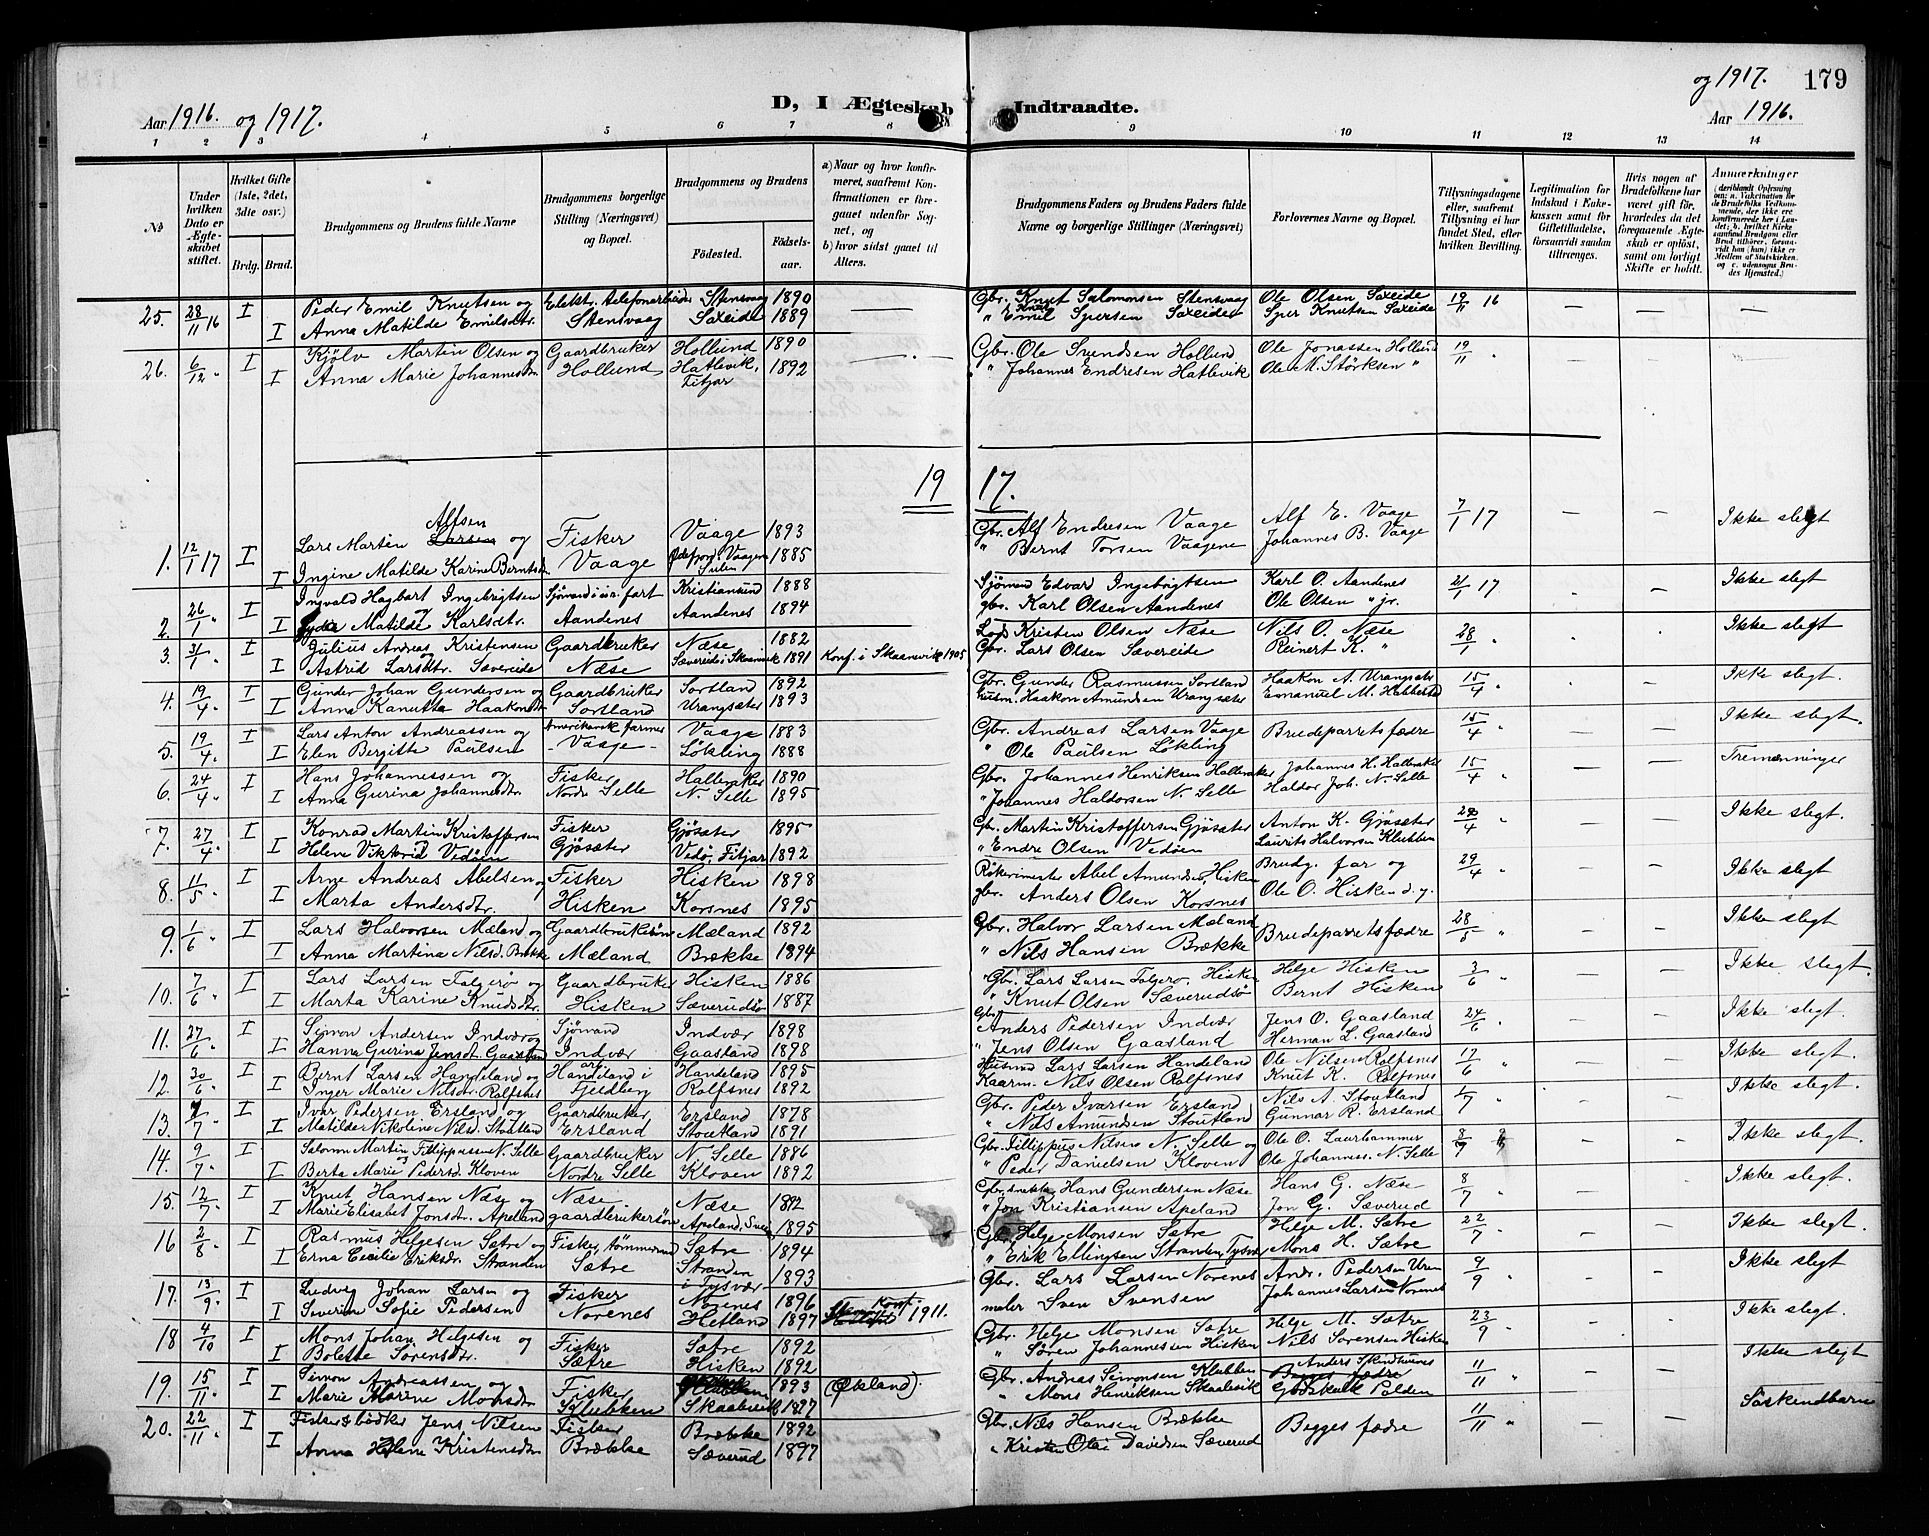 Aar 1916. og 1917.
D, I Ægteskab Indtraadte.
og 1917. 179
Aar 1916.
1 2 3 4 5 6 7 8 9 10 11 12 13 14
No
Under hvilken Dato er Ægteskabet stiftet.
Hvilket Gifte (1ste, 2det, 3die osv.)
Brdg. Brud.
Brudgommens og Brudens fulde Navne
Brudgommens borgerlige Stilling (Næringsvei) og Bopæl.
Brudgommens og Brudens
Fødested.
Fødselsaar.
a) Naar og hvor konfirmeret, saafremt Konfirmationen er foregaaet udenfor Sognet, og
b) hvor sidst gaaet til Alters.
Brudgommens Faders og Brudens Faders fulde Navne og borgerlige Stillinger (Næringsvei)
Forlovernes Navne og Bopæl.
Tillysningsdagene eller, saafremt Tillysning ei har fundet Sted, efter hvilken Bevilling.
Legitimation for Indskud i Enkekassen samt for Giftetilladelse, forsaavidt saadan tiltrænges.
Hvis nogen af Brudefolkene har været gift før, hvorledes da det foregaaende Ægteskab er opløst, samt om lovligt Skifte er holdt.
Anmærkninger
25. 28/11 16 I Peder Emil Knutsen og Elektr. telefonarbeider Stensvaag 1890 Gbr. Knut Salomonsen Stensvaag Ole Olsen Saxeide 19/11 16
I Anna Matilde Emilsdtr. Stensvaag Saxeide 1889 " Emil Spersen Saxeide Sper Knutsen Saxeide
26. 6/12 " I Kjølv Martin Olsen og Gaardbruker Hollund 1890 Gbr. Ole Svendsen Hollund Ole Jonassen Hollund 19/11 "
I Anna Marie Johannesdtr. Hollund Hatlevik, Fitjar 1892 " Johannes Endresen Hatlevik Ole M. Størksen "
19 17.
Alfsen
1. 12/1 17 I Lars Martin Larsen og Fisker Vaage 1893 Gbr. Alf Endresen Vaage Alf E. Vaage 7/1 17 Ikke slegt
I Ingine Matilde Karine Berntsdtr. Vaage 1885 " Bernt Torsen Vaagene Johannes B. Vaage
2. 26/1 " I Ingvald Hagbart Ingebrigtsen og Sjømand i utr. fart Kristiansund 1888 Sjømand Edvar Ingebrigtsen Karl O. Aandenes 21/1 17 Ikke slegt
I Matilde Karlsdtr. Aandenes Aandenes 1894 gbr. Karl Olsen Aandenes Ole Olsen " jr.
3. 31/1 " I Julius Andreas Kristensen Gaardbruker Næse 1882 Lods Kristen Olsen Næse Nils O. Næse 28/1 " Ikke slegt
I Astrid Larsdtr. Sævereide Næse Sævereide i Skaanevik 1891 Konf. i Skaanevik 1905 Gbr. Lars Olsen Sævereide Reinert K. "
4. 19/4 " I Gunder Johan Gundersen og Gaardbruker Sortland 1892 Gbr. Gunder Rasmussen Sortland Haakon A. Urangsæter 15/4 " Ikke slegt.
I Anna Kanutta Haakonsdtr Sortland Urangsæter 1893 husm. Haakon Amundsen Urangsæter Emanuel M. Hebbestad
5. 19/4 " I Lars Anton Andreassen og Amerikansk farmer Vaage 1883 Gbr. Andreas Larsen Vaage Brudeparrets fædre 15/4 " Ikke slegt.
I Elen Bergitte Paulsen - Vaage - Løkling 1888 " Ole Paulsen Løkling
6. 24/4 " I Hans Johannessen og Fisker Halleraker 1890 Gbr. Johannes Henriksen Halleraker Johannes H. Halleraker 15/4 " Tremænninger
I Anna Gurina Johannesdtr. Nordre Selle N. Selle 1895 " Johannes Haldorsen N. Selle Haldor Joh. N. Selle
7. 27/4 " I Konrad Martin Kristoffersen Fisker Gjøsæter 1895 Gbr. Martin Kristoffersen Gjøsæter Anton K. Gjøsæter 22/4 " Ikke slegt.
I Helene Viktoria Vedøen Gjøsæter Vedø, Fitjar 1892 " Endre Olsen Vedøen Laurits Halvorsen Klubben
8. 11/5 " I Arne Andreas Abelsen og Fisker Hisken 1898 Abel Amundsen, Hisken Brudg. far og 29/4 " Ikke slegt
I Marta Andersdtr. Hisken Korsnes 1895 gbr. Anders Olsen Korsnes Ole O. Hisken d. y.
9. 1/6 " I Lars Halvorsen Mæland og Gaardbrukersøn Mæland 1892 Gbr. Halvor Larsen Mæland Brudeparrets fædre 28/5 " Ikke slegt
I Anna Martina Nilsd. Brekke Mæland Brække 1894 " Nils Hansen Brække
10. 7/6 " I Lars Larsen Folgerø og Gaardbruker Hisken 1886 Gbr. Lars Larsen Folgerø, Hisken Helge Hisken 3/6 " Ikke slegt.
I Marta Karine Knudsdtr. Hisken Sæverudsø 1887 " Knut Olsen Sæverudsø Bernt Hisken
11. 27/6 " I Simon Andersen Indvær og Sjømand Indvær 1898 Gbr. Anders Pedersen Indvær Jens O. Gaasland 24/6 " Ikke slegt.
I Hanna Gurina Jensdt. Gaasland Indvær Gaasland 1898 " Jens Olsen Gaasland Herman L. Gaasland
12. 30/6 " I Bernt Larsen Handeland og Handeland i Handeland 1895 Husmd Lars Larsen Handeland Ole Nilsen Rolfsnes 17/6 " Ikke slegt.
I Inger Marie Nilsdr. Rolfsnes Fjeldberg Rolfsnes 1892 Kaarm. Nils Olsen Rolfsnes Knut K. Rolfsnes
13. 7/7 " I Ivar Pedersen Ersland og Gaardbruker Ersland 1878 Gbr. Peder Iversen Ersland Nils A. Stoutland 1/7 " Ikke slegt.
I Matilde Nikoline Nilsd. Stoutland Ersland Stoutland 1891 " Nils Amundsen Stoutland Gunnar R. Ersland
14. 9/7 " I Salomon Martin Fillippussen N. Selle Gaardbruker N. Selle 1886 Gbr. Fillippus Nilsen N. Selle og Ole O. Laurhammer 8/7 Ikke slegt.
I Berta Marie Pedersd. Kloven Nordre Selle Kloven 1892 " Peder Danielsen Kloven Ole Johanness. N. Selle
15. 12/7 " I Knut Hansen Næse og Næse Næse 1892 Gbr. Hans Gundersen Næse Hans G. Næse 8/7 Ikke slegt.
I Marie Elisabet Jonsdtr. Apeland gaardbrukersøn Apeland, Sveen 1895 " Jon Kristiansen Apeland Jon G. Sæverud
16 2/8 " I Rasmus Helgesen Sætre og Fisker, tømmermand Sætre 1894 Gbr. Helge Monsen Sætre Helge M. Sætre 22/7 " Ikke slegt.
I Erna Cecilie Eriksdr. Stranden Sætre Stranden i Tysvær 1893 " Erik Ellingsen Stranden, Tysvær Mons H. Sætre
17. 13/9 " I Ludvig Johan Larsen og Fisker Norenes 1896 Konf. 1911. Gbr. Lars Larsen Norenes Andr. Pedersen Uren 9/9 " Ikke slegt
I Severine Sofie Pedersen Norenes Hetland 1897 maler Sven Svensen Johannes Larsen Norenes
18 4/10 I Mons Johan Helgesen og Fisker Sætre 1892 Gbr. Helge Monsen Sætre Helge M. Sætre 23/9 " Ikke slegt.
I Bolette Sørensdtr. Sætre Hisken 1892 " Søren Johannessen Hisken Nils Sørensen Hisken
19. 15/11 " I Simon Andreassen og Fisker Klubben 1893 (Økland). Gbr. Andreas Simonsen Klubben Anders Skinthunes 11/11 " Ikke slegt
I Marie Marine Monsdtr Klubben Skaalevik 1897 " Mons Henriksen Skaalevik Godskalk Polden
20. 22/11 " I Fisker & bødker Jens Nilsen Fisker Brække 1892 Gbr. Nils Hansen Brække Begges fædre 11/11 " Søskendbarn
I Anna Helene Kristensdtr. Brække Sæverud 1897 " Kristen Olai Davidsen Sæverud